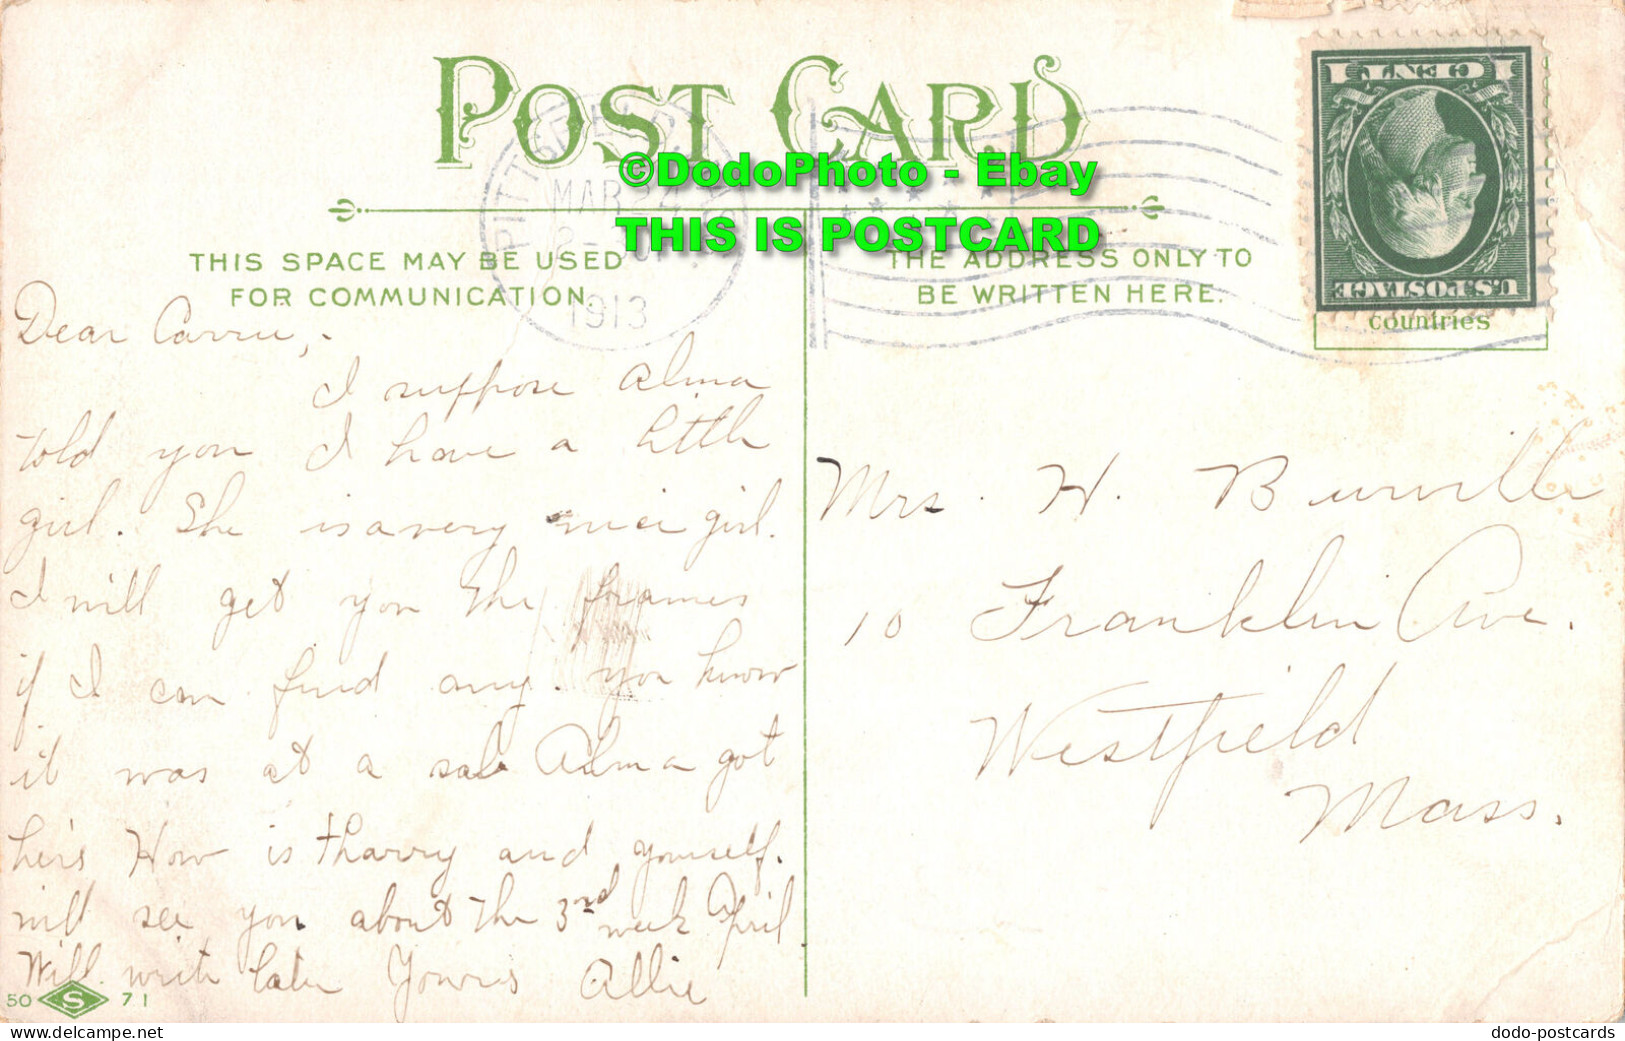 POST CARD
©DodoPhoto - Ebay
THIS IS POSTCARD
PITTSFIELD
MAR 24
1913
THIS SPACE MAY BE USED
FOR COMMUNICATION.
THE ADDRESS ONLY TO
BE WRITTEN HERE.
1 CENT 1
U.S. POSTAGE
countries
Dear Carrie,.
I suppose Alma
told you I have a little
girl. She is a very nice girl.
I will get you the frames
if I can find any. you know
it was at a sale Alma got
hers How is Harry and yourself.
will see you about the 3rd week April
Will write later Yours Allie
50 S 71
Mrs. H.
10 Franklin Ave.
Westfield
Mass.
dodo-postcards